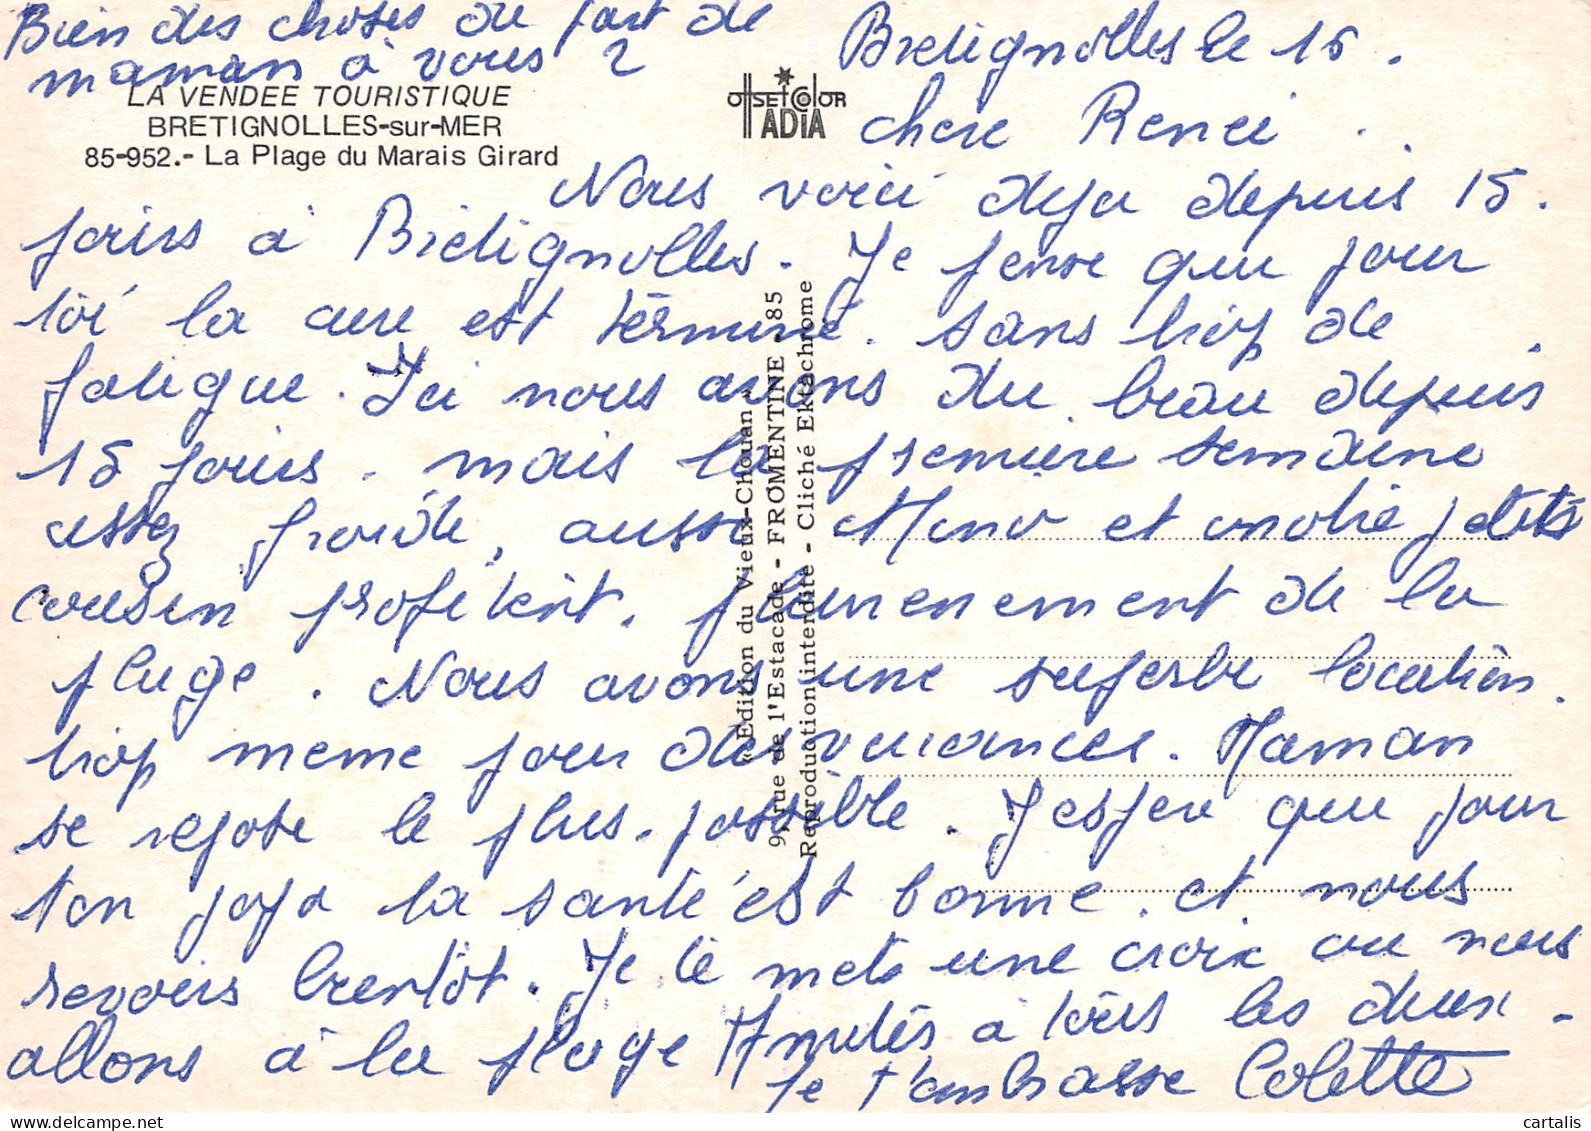 Bien des choses de part de
maman à vous 2
LA VENDEE TOURISTIQUE
BRETIGNOLLES-sur-MER
85-952.- La Plage du Marais Girard
OffSEt COlOR
ADIA
Bretignolles le 15.
chere Renei
Nous voici deja depuis 15.
jours à Bretignolles. Je pense que pour
toi la cure est terminé. sans trop de
fatigue. Ici nous avons du beau depuis
15 jours. mais la premiere semaine
assez froide, aussi et notre petits
cousin profitent. pleinenement de la
plage. Nous avons une superbe location.
trop meme pour des vacances. Maman
se repose le plus possible. J espere que pour
ton papa la santé est bonne. et nous
revoirs bientot. Je te mets une croix ou nous
allons à la plage Amitiés à tous les deux.
Je t'embrasse Colette
« Edition du Vieux-Chouan »
97, rue de l'Estacade - FROMENTINE - 85
Reproduction interdite - Cliché Ektachrome
cartalis
www.delcampe.net